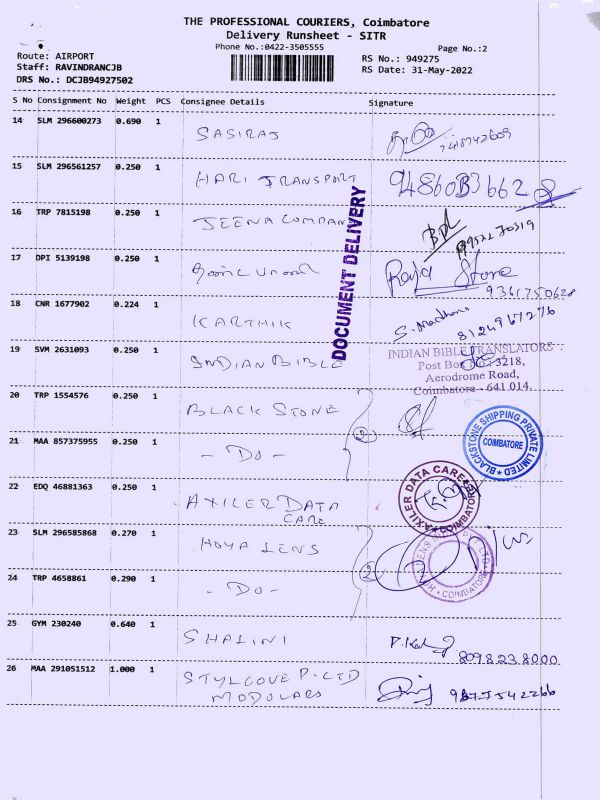 THE PROFESSIONAL COURIERS, Coimbatore
Delivery Runsheet - SITR
Phone No.:0422-3505555
Page No.:2
Route: AIRPORT
RS No.: 949275
Staff: RAVINDRANCJB
RS Date: 31-May-2022
DRS No.: DCJB94927502
S No Consignment No Weight PCS Consignee Details Signature
14 SLM 296600273 0.690 1 SASIRAJ
15 SLM 296561257 0.250 1 HARI TRANSPORT
16 TRP 7815198 0.250 1 JEENA COMPANY
17 DPI 5139198 0.250 1
Raja Store
9361750628
DOCUMENT DELIVERY
18 CNR 1677902 0.224 1 KARTHIK
S. Madhan
8124967276
19 SVM 2631093 0.250 1 INDIAN BIBLE
INDIAN BIBLE TRANSLATORS
Post Box No : 3218,
Aerodrome Road,
Coimbatore - 641 014.
20 TRP 1554576 0.250 1 BLACK STONE
21 MAA 857375955 0.250 1 - DO -
2
BLACKSTONE SHIPPING PRIVATE LIMITED
COIMBATORE
22 EDQ 46881363 0.250 1 AXILER DATA
CARE
AXILER DATA CARE
COIMBATORE
23 SLM 296585868 0.270 1 HOYA LENS
24 TRP 4658861 0.290 1 - DO -
2
COIMBATORE
25 GYM 230240 0.640 1 SHALINI
8098238000
26 MAA 291051512 1.000 1 STYLCOVE P-LTD
MODULARS